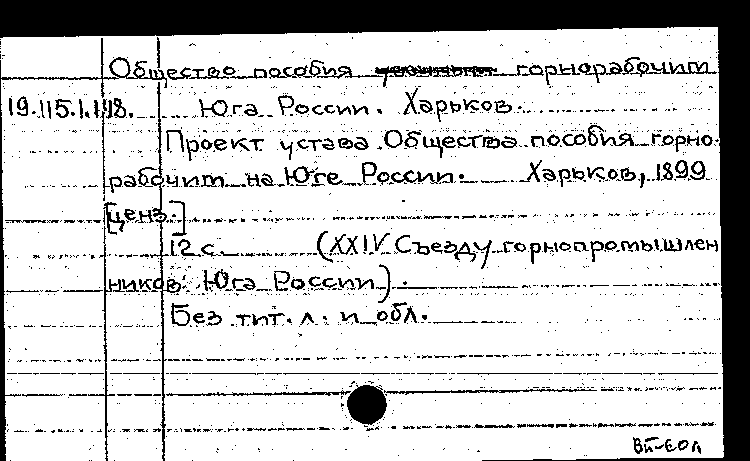 Общество пособия горнорабочим
19.115.1.118. Юга России. Харьков.
Проект устава Общества пособия горно-
рабочим на Юге России. Харьков, 1899
[ценз.]
12 с. (XXIV Съезду горнопромышлен
ников Юга России).
Без тит. л. и обл.